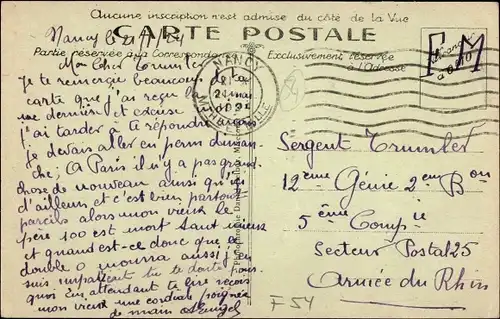 Aucune inscription n'est admise du côté de la Vue
CARTE POSTALE
Partie réservée à la Correspondance
Exclusivement réservé à l'Adresse
Nancy le
Mon cher Trumler
Je te remercie beaucoup de la
carte que j'ai reçu la
dernière et excuse moi
j'ai tardé à te répondre
je devais aller en perm diman-
che; A Paris il n'y a pas grand
chose de nouveau ainsi qu'ici
d'ailleurs et c'est bien partout
pareils alors mon vieux le
père 100 est mort
et quand est-ce donc que le
double 0 mourra aussi j'en
suis impatient tu te doute
quoi en attendant te lire reçois
mon vieux une cordiale poignée
de main
NANCY
F M
Sergent Trumler
12ème Génie 2em Bon
5ème Compie
Secteur Postal 25
Armée du Rhin
F 54